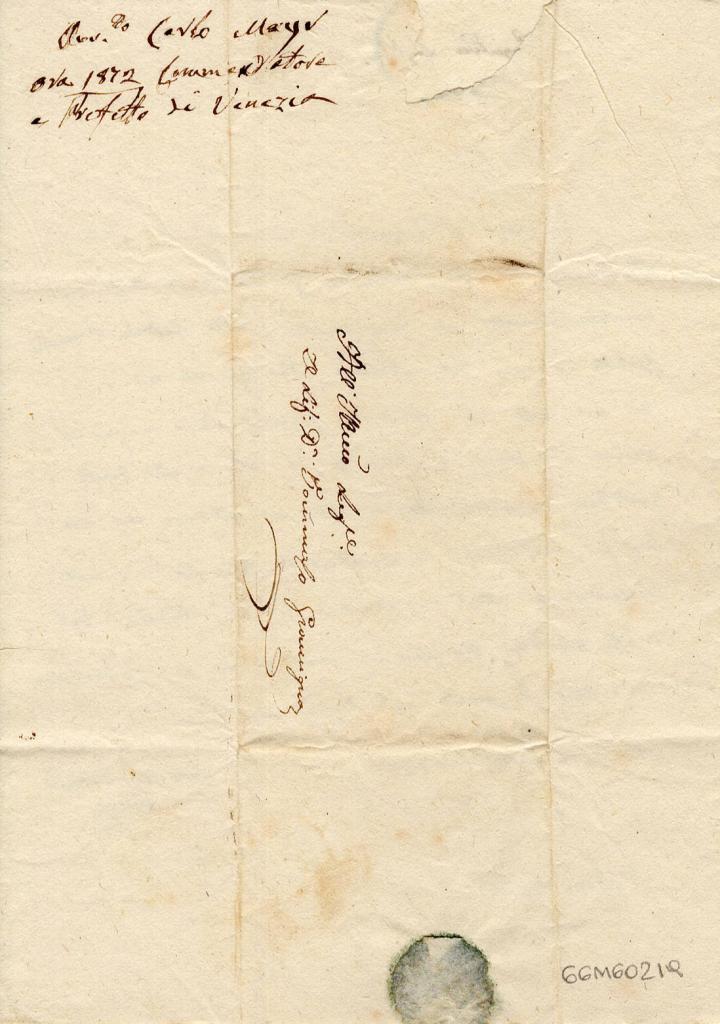 Avv.to Carlo Mayr
ora 1872 Commendatore
e Prefetto di Venezia
All' Illmo Sigre:
Il Sig: Dr. Tommaso Gromigna
66M6021R